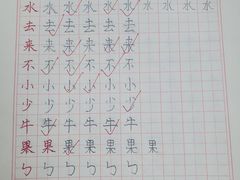 水水水水水水水水水水水
去去去去去去
来来来来来来
不不不不不不
小小小小小小
少少少少少少
牛牛牛牛牛牛
果果果果果果果
ㄅㄅㄅㄅㄅㄅ